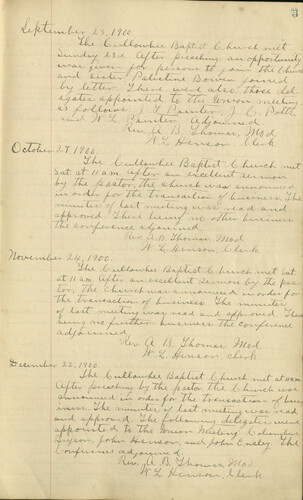 3
September 23, 1900.
The Cullowhee Baptist Church met
Sunday 23rd. After preaching, an opportunity
was given for persons to join the Church
and sister Palestine Bowen joined
by letter. There were also those del-
egates appointed to the Union meeting
as follows. D. Painter, J. C. Potts,
and W. L. Painter. Adjourned.
Rev. A. B. Thomas, Mod
W. L. Henson, Clerk
October 27, 1900.
The Cullowhee Baptist Church met
Sat. at 11 a.m. After an excellent sermon
by the pastor, the church was announced
in order for the transaction of business. The
minutes of last meeting was read and
approved. There being no other business
the conference adjourned.
Rev. A. B. Thomas, Mod
W. L. Henson, Clerk
November 24, 1900.
The Cullowhee Baptist Church met Sat.
at 11 a.m. After an excellent sermon by the pas-
tor, the Church was announced in order for
the transaction of business. The minutes
of last meeting was read and approved. There
being no further business the conference
adjourned.
Rev. A. B. Thomas, Mod.
W. L. Henson, Clerk
December 22, 1900.
The Cullowhee Baptist Church met at 11 a.m.
After preaching by the pastor the Church was
announced in order for the transaction of busi-
ness. The minutes of last meeting was read
and approved. The following delegates were
appointed to the Union Meeting. Columbus
John Henson, and John Ensley. The
Conference adjourned.
Rev. A. B. Thomas, Mod
W. L. Henson, Clerk